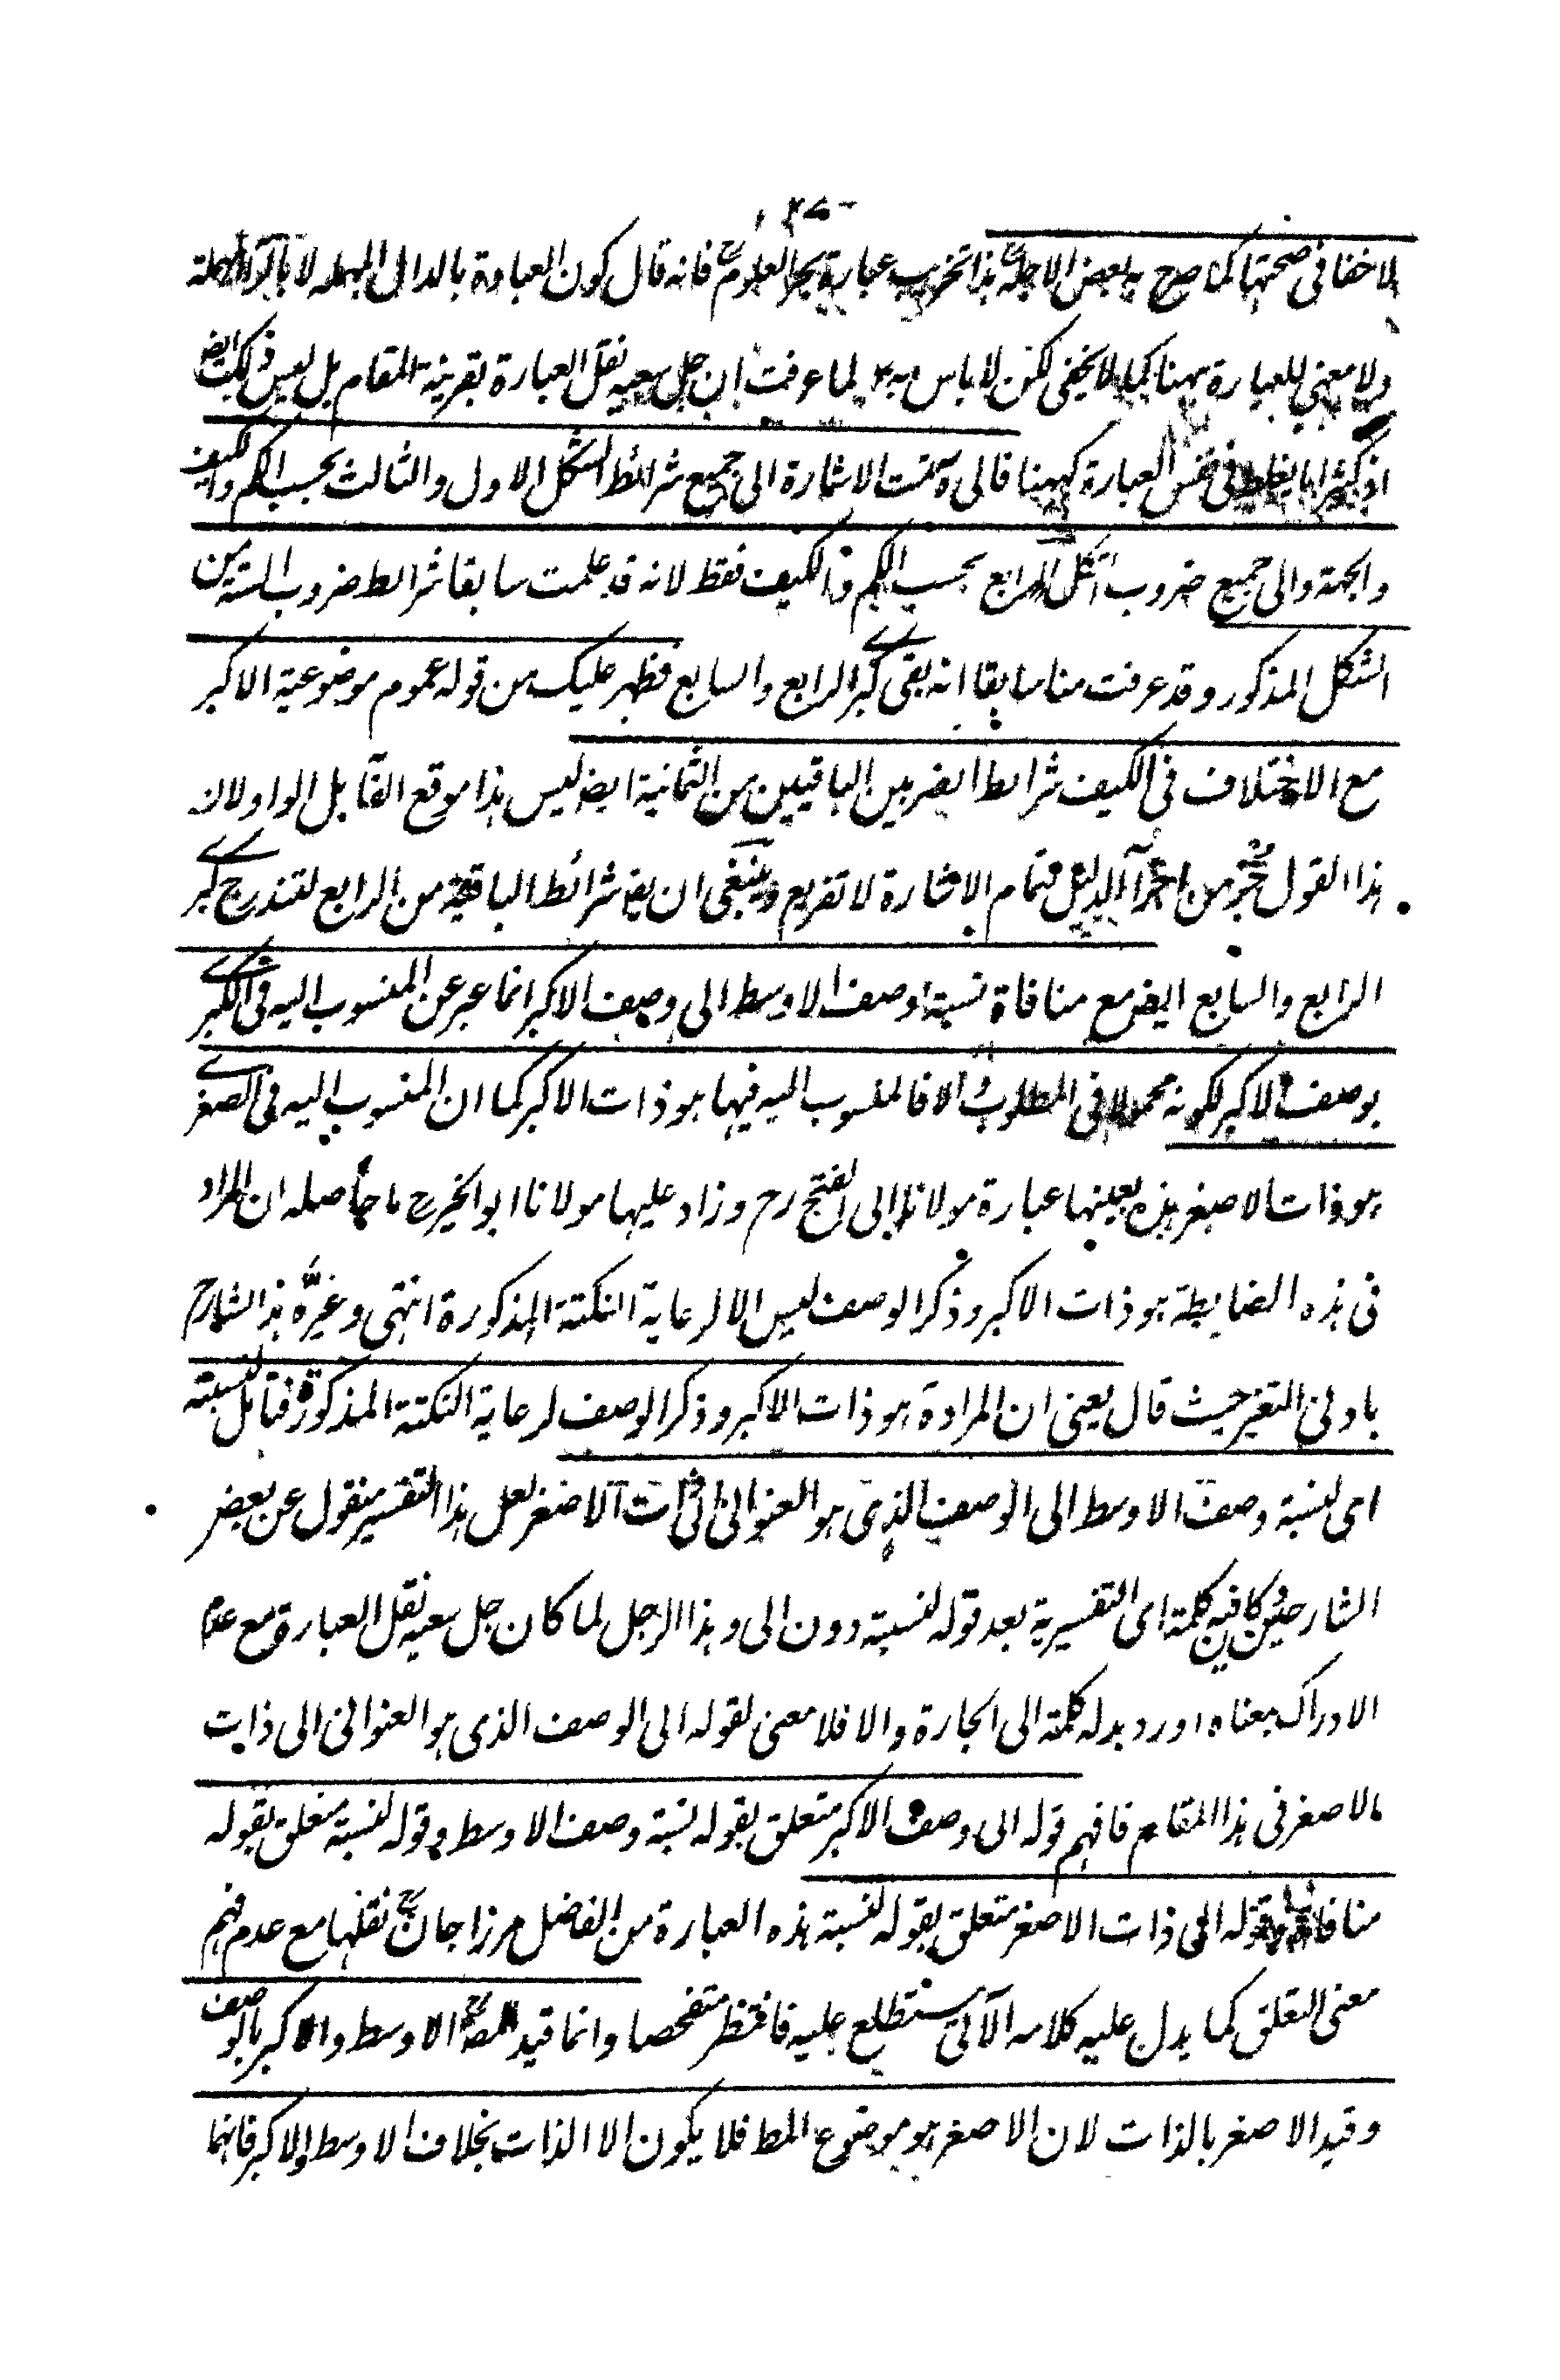 لا خفا فى صحتها كما صرح به بعض الاجلة هذا تخريب عبارة بحر العلوم فانه قال كون العبادة بالدال المهملة لا بالراء المهملة
ولا معنى للعبارة ههنا كما لا يخفى لكن لا باس به لما عرفت ان جل سعيه نقل العبارة بقرينة المقام بل ليس ذلك ايض
العبارة كههنا قال وتمت الاشارة الى جميع شرائط الشكل الاول والثالث بحسب الكم والكيف
والجهة والى جميع ضروب الشكل الرابع بحسب الكم والكيف فقط لانه قد علمت سابقا شرائط ضروب الستة من
الشكل المذكور وقد عرفت منا سابقا انه بقى كبرى الرابع والسابع فظهر عليك من قوله عموم موضوعية الاكبر
مع الاختلاف فى الكيف شرائط الضربين الباقيين من الثمانية ايض ليس هذا موقع القابل الواو لان
هذا القول جزء من اجزاء الدليل فتمام الاشارة لا تفريع وينبغى ان شرائط الباقية من الرابع لتندرج كبرى
الرابع والسابع ايض مع منافاة نسبة وصف الاوسط الى وصف الاكبر انما عبر عن المنسوب اليه فى الكبرى
بوصف الاكبر لكونه محمولا فى المطلوب والا فالمنسوب اليه فيها هو ذات الاكبر كما ان المنسوب اليه فى الصغرى
هو ذات الاصغر هذه بعينها عبارة مولانا ابى الفتح رح وزاد عليها مولانا ابو الخير رح ما حاصله ان المراد
فى هذه الضابطة هو ذات الاكبر وذكر الوصف ليس الا لرعاية النكتة المذكورة انتهى وغيّره هذا الشارح
بادنى التغير حيث قال يعنى ان المراد هو ذات الاكبر وذكر الوصف لرعاية النكتة المذكورة فتامل لنسبته
اى لنسبة وصف الاوسط الى الوصف الذى هو العنوانى الى ذات الاصغر لعل هذا التفسير منقول عن بعض
الشارحين فيه كلمة اى التفسيرية بعد قوله لنسبة دون الى وهذا الرجل لما كان جل سعيه نقل العبارة مع عدم
الادراك بمعناه اورد بدله كلمة الى الجارة والا فلا معنى لقوله الى الوصف الذى هو العنوانى الى ذات
الاصغر فى هذا المقام فافهم قوله الى وصف الاكبر متعلق بقوله نسبة وصف الاوسط وقوله لنسبة متعلق بقوله
منافاة وقوله الى ذات الاصغر متعلق بقوله لنسبة هذه العبارة من الفاضل مرزا جان رح نقلها مع عدم فهم
معنى التعلق كما يدل عليه كلامه الآتى ستطلع عليه فانتظر متفحصا وانما قيد المصنف الاوسط والاكبر بالوصف
وقيد الاصغر بالذات لان الاصغر هو موضوع المط فلا يكون الا الذات بخلاف الاوسط والاكبر فانهما